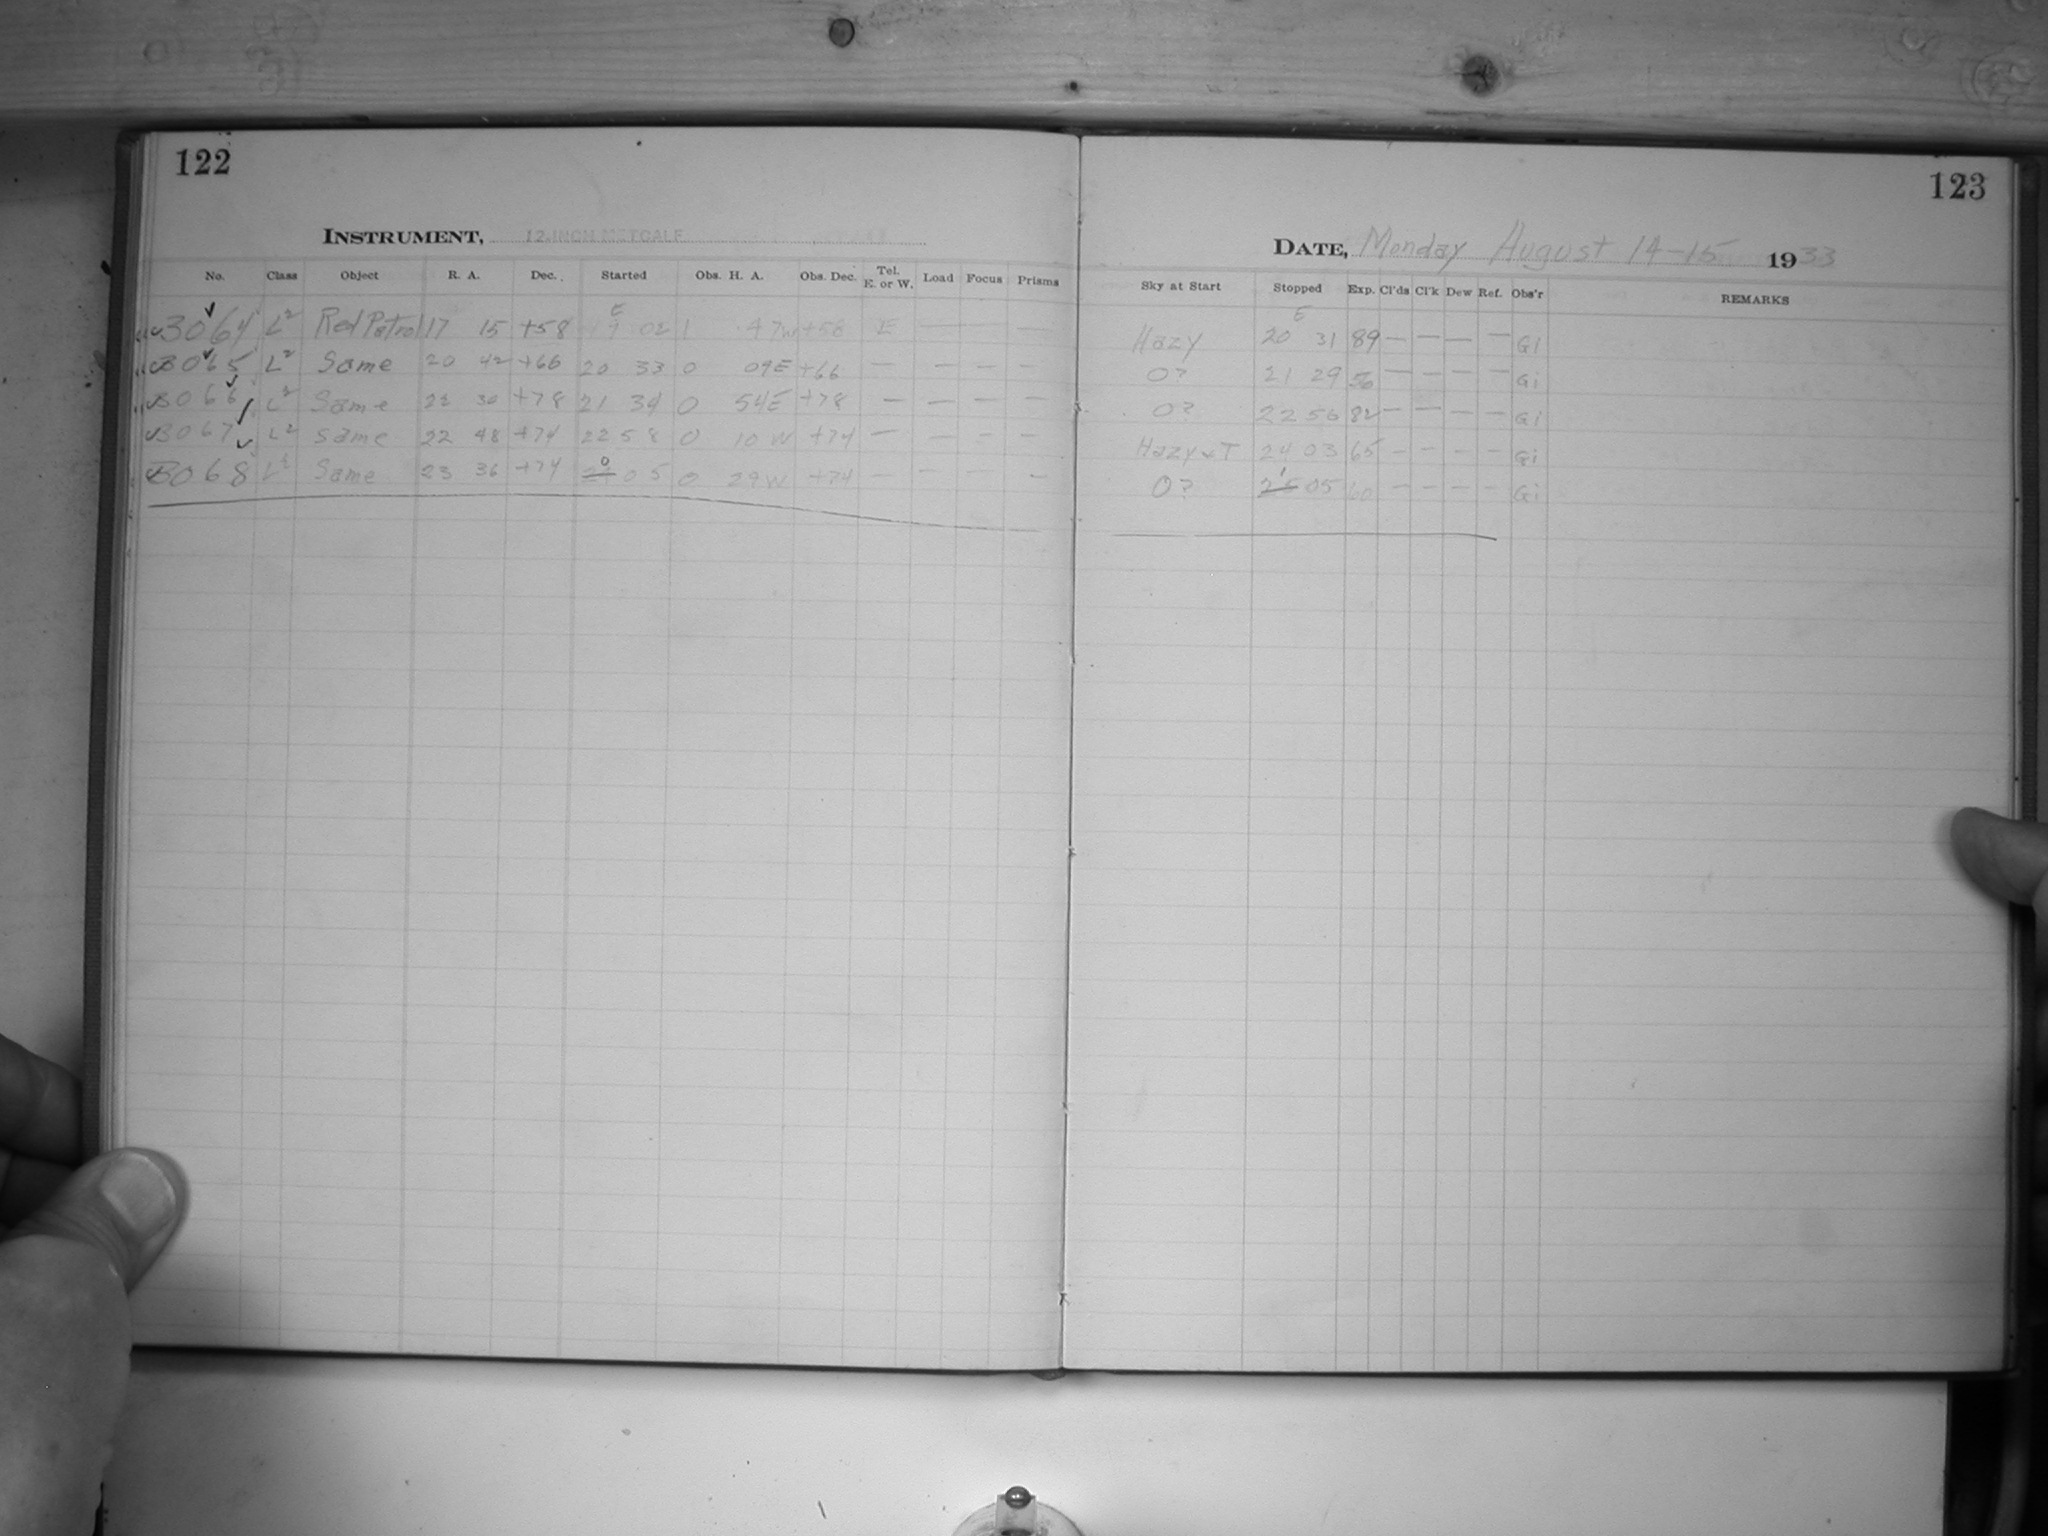 122
INSTRUMENT, 12-INCH METCALF
No. Class Object R. A. Dec. Started Obs. H. A. Obs. Dec. Tel. E. or W. Load Focus Prisms
3064 L² Red Patrol 17 15 +58 19 02 1 47W +58 E — — —
3065 L² Same 20 42 +66 20 33 0 09E +66 — — — —
3066 L² Same 22 30 +78 21 34 0 54E +78 — — — —
3067 L² Same 22 48 +74 22 58 0 10W +74 — — — —
3068 L² Same 23 36 +74 0 05 0 29W +74 — — — —
123
DATE, Monday August 14-15 1933
Sky at Start Stopped Exp. Cl'ds Cl'k Dew Ref. Obs'r REMARKS
Hazy E 20 31 89 — — — — Gi
0? 21 29 56 — — — — Gi
0? 22 56 82 — — — — Gi
Hazy + T 24 03 65 — — — — Gi
0? 1 05 60 — — — — Gi